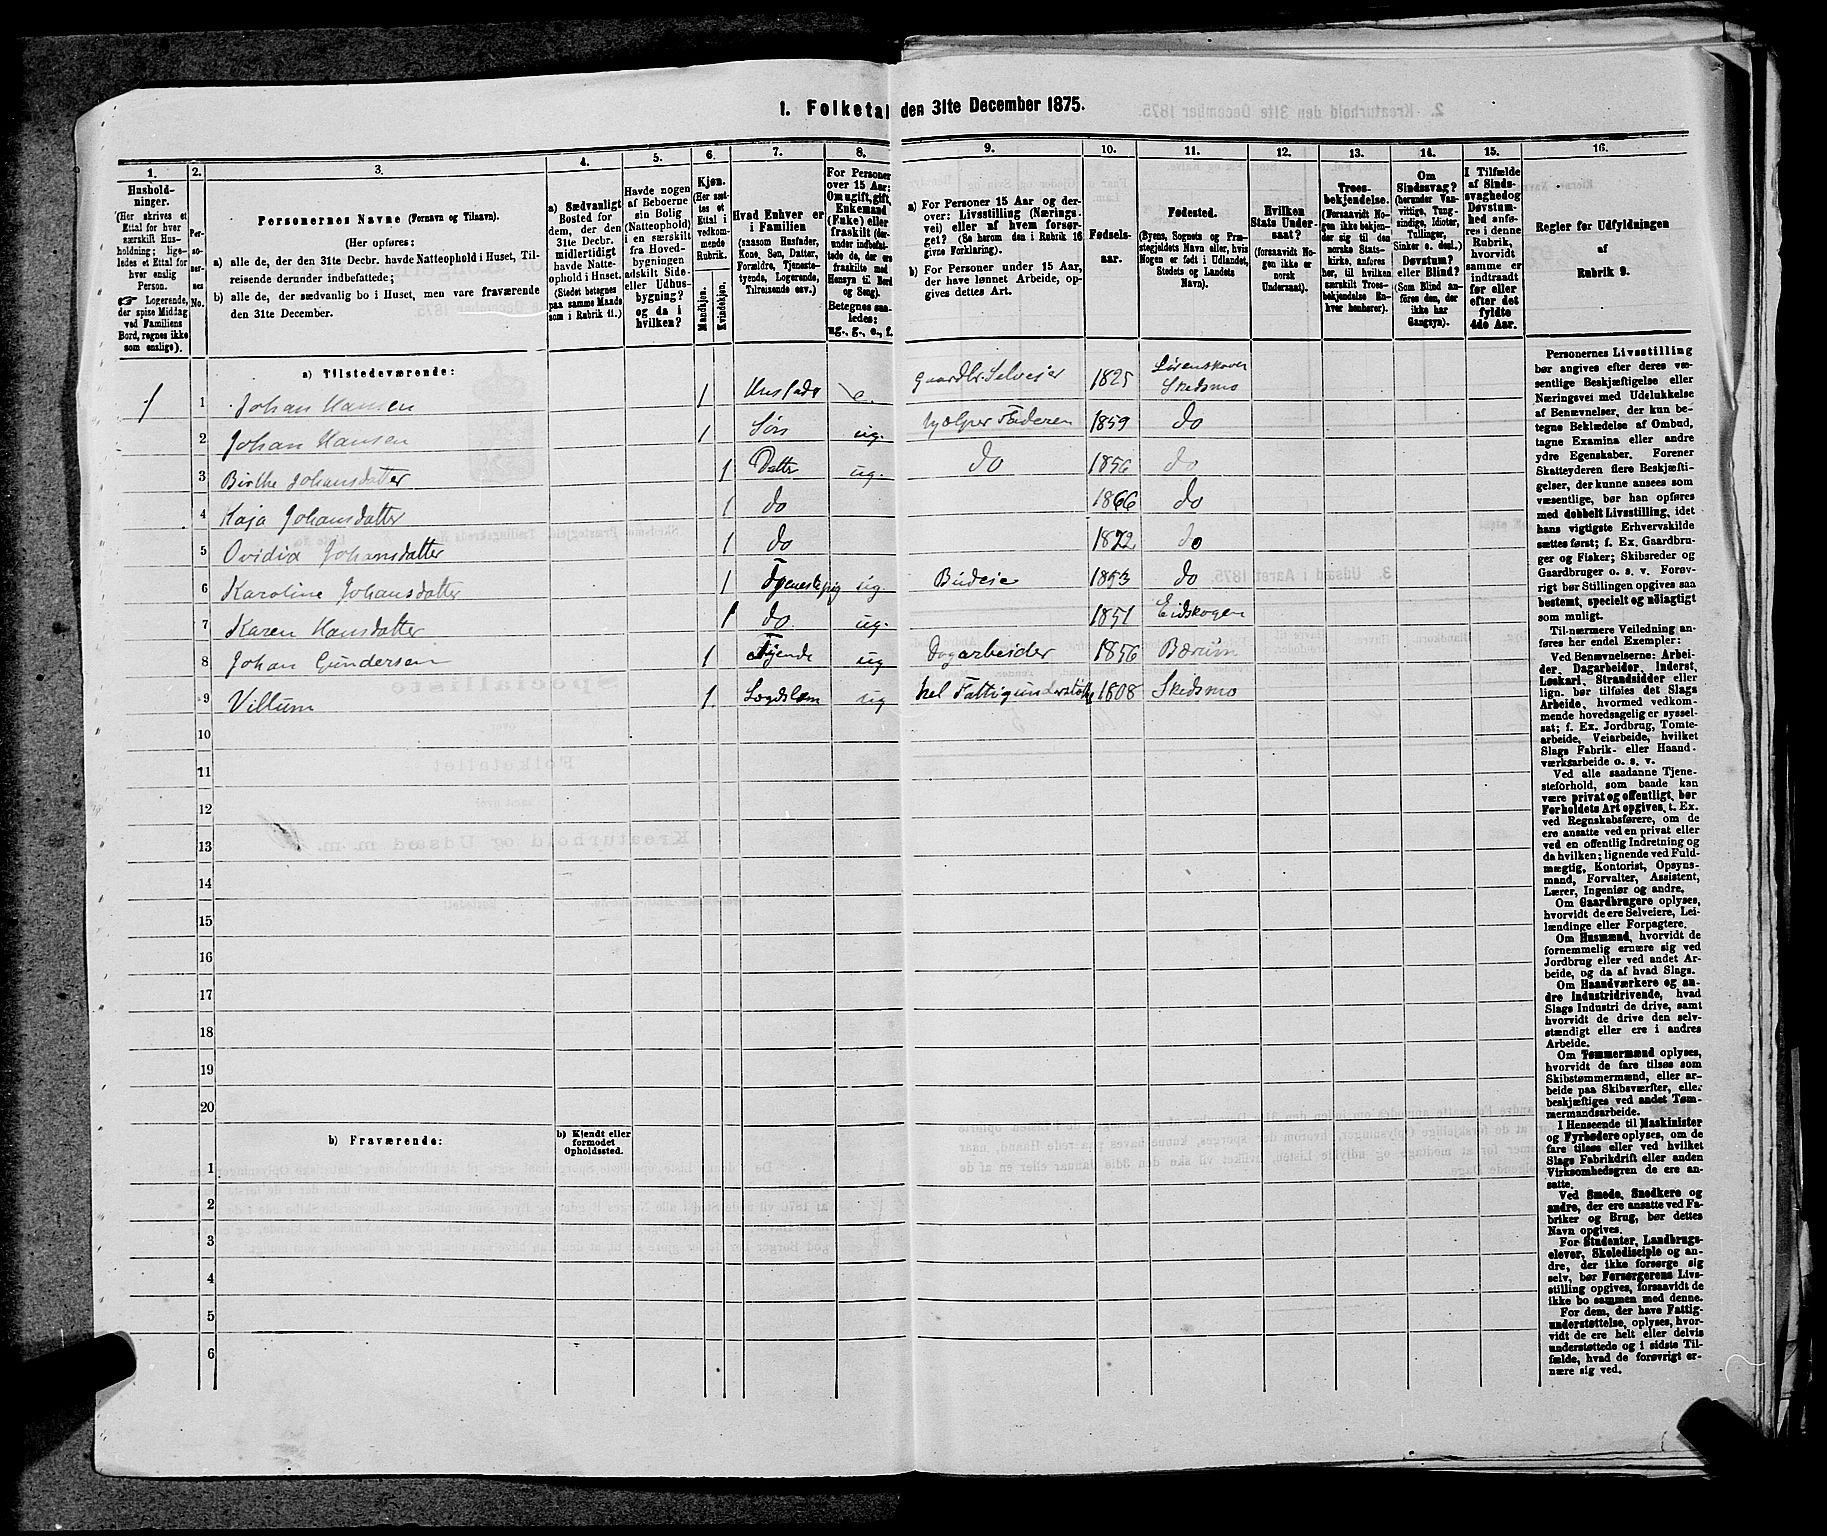 1. Folketal den 31te December 1875.
1.
Hushold-
ninger.
(Her skrives et
Ettal for hver
særskilt Hus-
holdning; lige-
ledes et Ettal for
hver enslig
Person.
☞ Logerende,
der spise Middag
ved Familiens
Bord, regnes ikke
som enslige).
2.
Per-
so-
ner-
nes
No.
3.
Personernes Navne (Fornavn og Tilnavn).
(Her opføres:
a) alle de, der den 31te Decbr. havde Natteophold i Huset, Til-
reisende derunder indbefattede;
b) alle de, der sædvanlig bo i Huset, men vare fraværende
den 31te December.
4.
a) Sædvanligt
Bosted for
dem, der den
31te Decbr.
midlertidigt
havde Natte-
ophold i Huset.
(Stedet betegnes
paa samme Maade
som i Rubrik 11.)
5.
Havde nogen
af Beboerne
sin Bolig
(Natteophold)
i en særskilt
fra Hoved-
bygningen
adskilt Side-
eller Udhus-
bygning?
og da i
hvilken?
6.
Kjøn.
(Her sæt-
tes et
Ettal i
vedkom-
mende
Rubrik.
Mandkjøn.
Kvindekjøn.
7.
Hvad Enhver er
i Familien
(saasom Husfader,
Kone, Søn, Datter,
Forældre, Tjeneste-
tyende, Logerende,
Tilreisende osv.)
8.
For Personer
over 15 Aar:
Om ugift, gift,
Enkemand
(Enke) eller
fraskilt (der-
under indbefat-
tede de, der ere
fraskilte med
Hensyn til Bord
og Seng).
Betegnes saa-
ledes:
ug., g., e., f.
9.
a) For Personer 15 Aar og der-
over: Livsstilling (Nærings-
vei) eller af hvem forsør-
get? (Se herom den i Rubrik 16
givne Forklaring).
b) For Personer under 15 Aar,
der have lønnet Arbeide, op-
gives dettes Art.
10.
Fødsels-
aar.
11.
Fødested.
(Byens, Sognets og Præ-
stegjeldets Navn eller, hvis
Nogen er født i Udlandet,
Stedets og Landets
Navn).
12.
Hvilken
Stats Under-
saat?
(forsaavidt No-
gen ikke er
norsk
Undersaat).
13.
Troes-
bekjendelse.
(Forsaavidt No-
gen ikke bekjen-
der sig til den
norske Stats-
kirke, anføres
her, til hvilken
særskilt Troes-
bekjendelse En-
hver henhører).
14.
Om
Sindssvag?
(herunder Van-
vittige, Tung-
sindige, Idioter,
Tullinger,
Sinker o. desl.)
Døvstum?
eller Blind?
(Som Blind an-
føres den, der
ikke har
Gangsyn).
15.
I Tilfælde
af Sinds-
svaghed og
Døvstum-
hed anfø-
res i denne
Rubrik,
hvorvidt
samme er
indtraadt
før eller
efter det
fyldte
4de Aar.
16.
Regler for Udfyldningen
af
Rubrik 9.
a) Tilstedeværende:
1 1 Johan Hansen 1 Husfader e. Gaardbr. Selveier 1825 Lørenskoven Skedsmo
2 Johan Hansen 1 Søn ug. hjælper Faderen 1859 do
3 Birthe Johansdatter 1 Datter ug. do 1856 do
4 Kaja Johansdatter 1 do 1866 do
5 Ovidia Johansdatter 1 do 1872 do
6 Karoline Johansdatter 1 Tjenestepig ug. Budeie 1853 do
7 Karen Hansdatter 1 do ug. 1851 Eidskogen
8 Johan Gundersen 1 Tjende ug Dagarbeider 1856 Bærum
9 Villum 1. Logdslem ug hel Fattigunderstøtt 1808 Skedsmo
10
11
12
13
14
15
16
17
18
19
20
b) Fraværende:
b) Kjendt eller
formodet
Opholdssted.
1
2
3
4
5
6
Personernes Livsstilling
bør angives efter deres væ-
sentlige Beskjæftigelse eller
Næringsvei med Udelukkelse
af Benævnelser, der kun be-
tegne Beklædelse af Ombud,
tagne Examina eller andre
ydre Egenskaber. Forener
Skatteyderen flere Beskjæfti-
gelser, der kunne ansees som
væsentlige, bør han opføres
med dobbelt Livsstilling, idet
hans vigtigste Erhvervskilde
sættes først; f. Ex. Gaardbru-
ger og Fisker; Skibsreder og
Gaardbruger o. s. v. Forøv-
rigt bør Stillingen opgives saa
bestemt, specielt og nøiagtigt
som muligt.
Til nærmere Veiledning an-
føres her endel Exempler:
Ved Benævnelserne: Arbei-
der, Dagarbeider, Inderst,
Løskarl, Strandsidder eller
lign. bør tilføies det Slags
Arbeide, hvormed vedkom-
mende hovedsagelig er syssel-
sat; f. Ex. Jordbrug, Tomte-
arbeide, Veiarbeide, hvilket
Slags Fabrik- eller Haand-
værksarbeide o. s. v.
Ved alle saadanne Tjene-
steforhold, som baade kan
være privat og offentligt, bør
Forholdets Art opgives, t. Ex.
ved Regnskabsførere, om de
ere ansatte ved en privat eller
ved en offentlig Indretning og
da hvilken; lignende ved Fuld-
mægtig, Kontorist, Opsyns-
mand, Forvalter, Assistent,
Lærer, Ingeniør og andre.
Om Gaardbrugere oplyses,
hvorvidt de ere Selveiere, Lei-
lændinge eller Forpagtere.
Om Husmænd, hvorvidt de
fornemmelig ernære sig ved
Jordbrug eller ved andet Ar-
beide, og da af hvad Slags.
Om Haandværkere og an-
dre Industridrivende, hvad
Slags Industri de drive, samt
hvorvidt de drive den selv-
stændigt eller ere i andres
Arbeide.
Om Tømmermænd oplyses,
hvorvidt de fare tilsøs som
Skibstømmermænd, eller ar-
beide paa Skibsværfter, elle.
beskjæftiges ved andet Tøm-
mermandsarbeide.
I Henseende til Maskinister
og Fyrbødere oplyses, om de
fare tilsøs eller ved hvilket
Slags Fabrikdrift eller anden
Virksomhedsgren de ere an-
satte.
Ved Smede, Snedkere og
andre, der ere ansatte ved Fa-
briker og Brug, bør dettes
Navn opgives.
For Studenter, Landbrugs-
elever, Skoledisciple og an-
dre, der ikke forsørge sig
selv, bør Forsørgerens Livs-
stilling opgives, forsaavidt de
ikke bo sammen med denne.
For dem, der have Fattig-
understøttelse, oplyses, hvor-
vidt de ere helt eller delvis
understøttede og i sidste Til-
fælde, hvad de forøvrigt er-
nære sig ved.